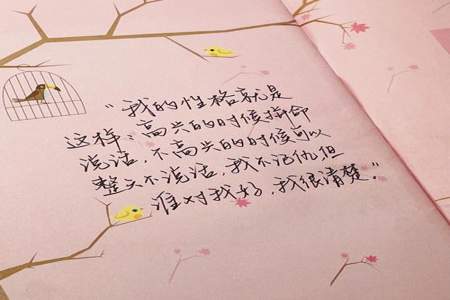 “我的性格就是
这样”高兴的时候拼命
说话，不高兴的时候可以
整天不说话，我不记仇但
谁对我好，我很清楚。”